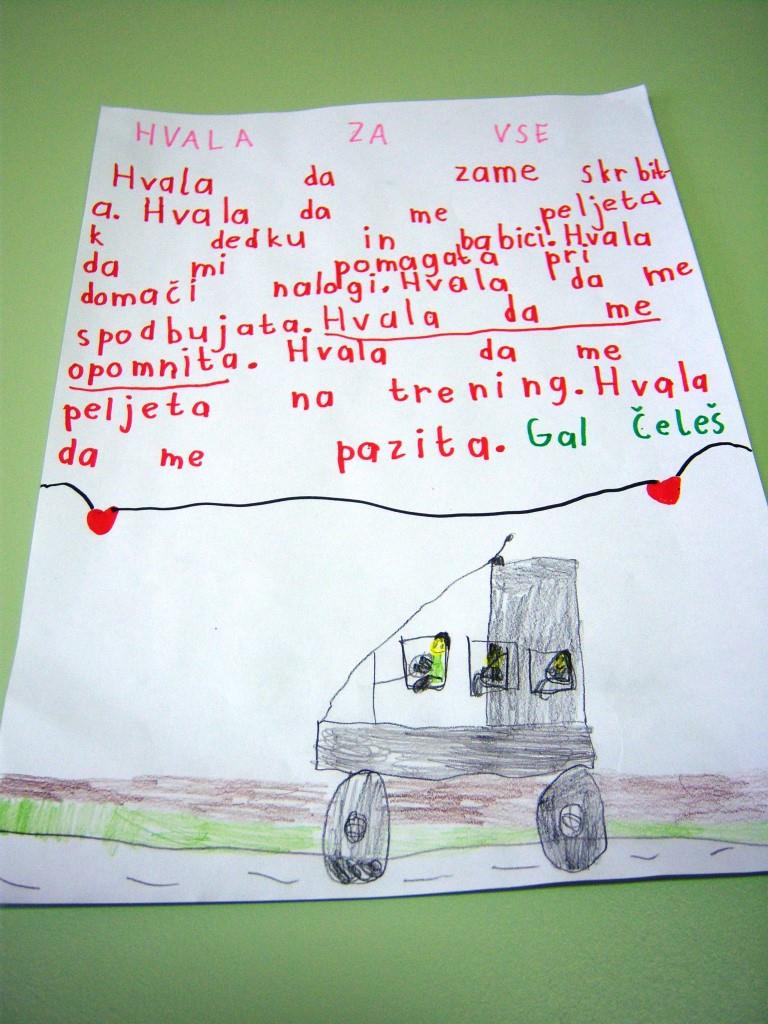 HVALA ZA VSE
Hvala da zame skrbit-
a. Hvala da me peljeta
k dedku in babici. Hvala
da mi pomagata pri
domači nalogi. Hvala da me
spodbujata. Hvala da me
opomnita. Hvala da me
peljeta na trening. Hvala
da me pazita. Gal Čeleš